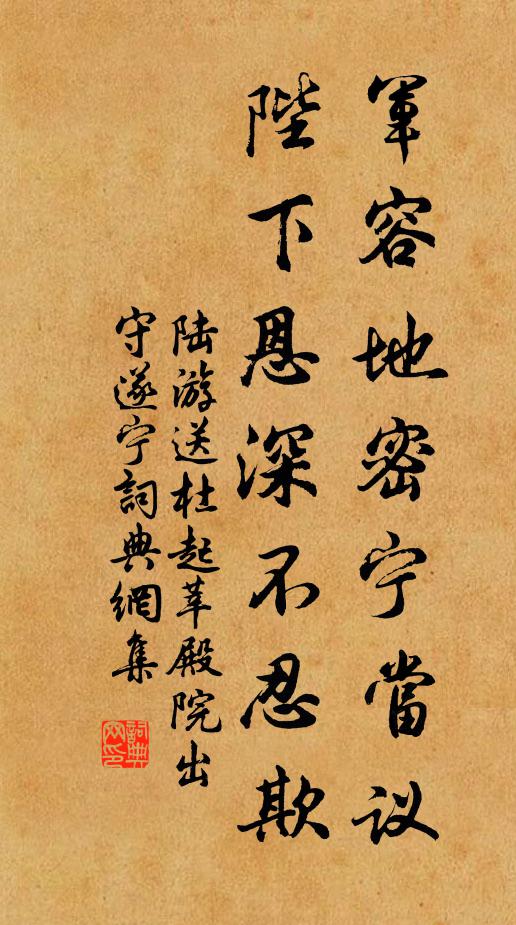 軍容地密宁當议
陛下恩深不忍欺
陆游送杜起莘殿院出
守遂宁詞典網集
詞典
网印